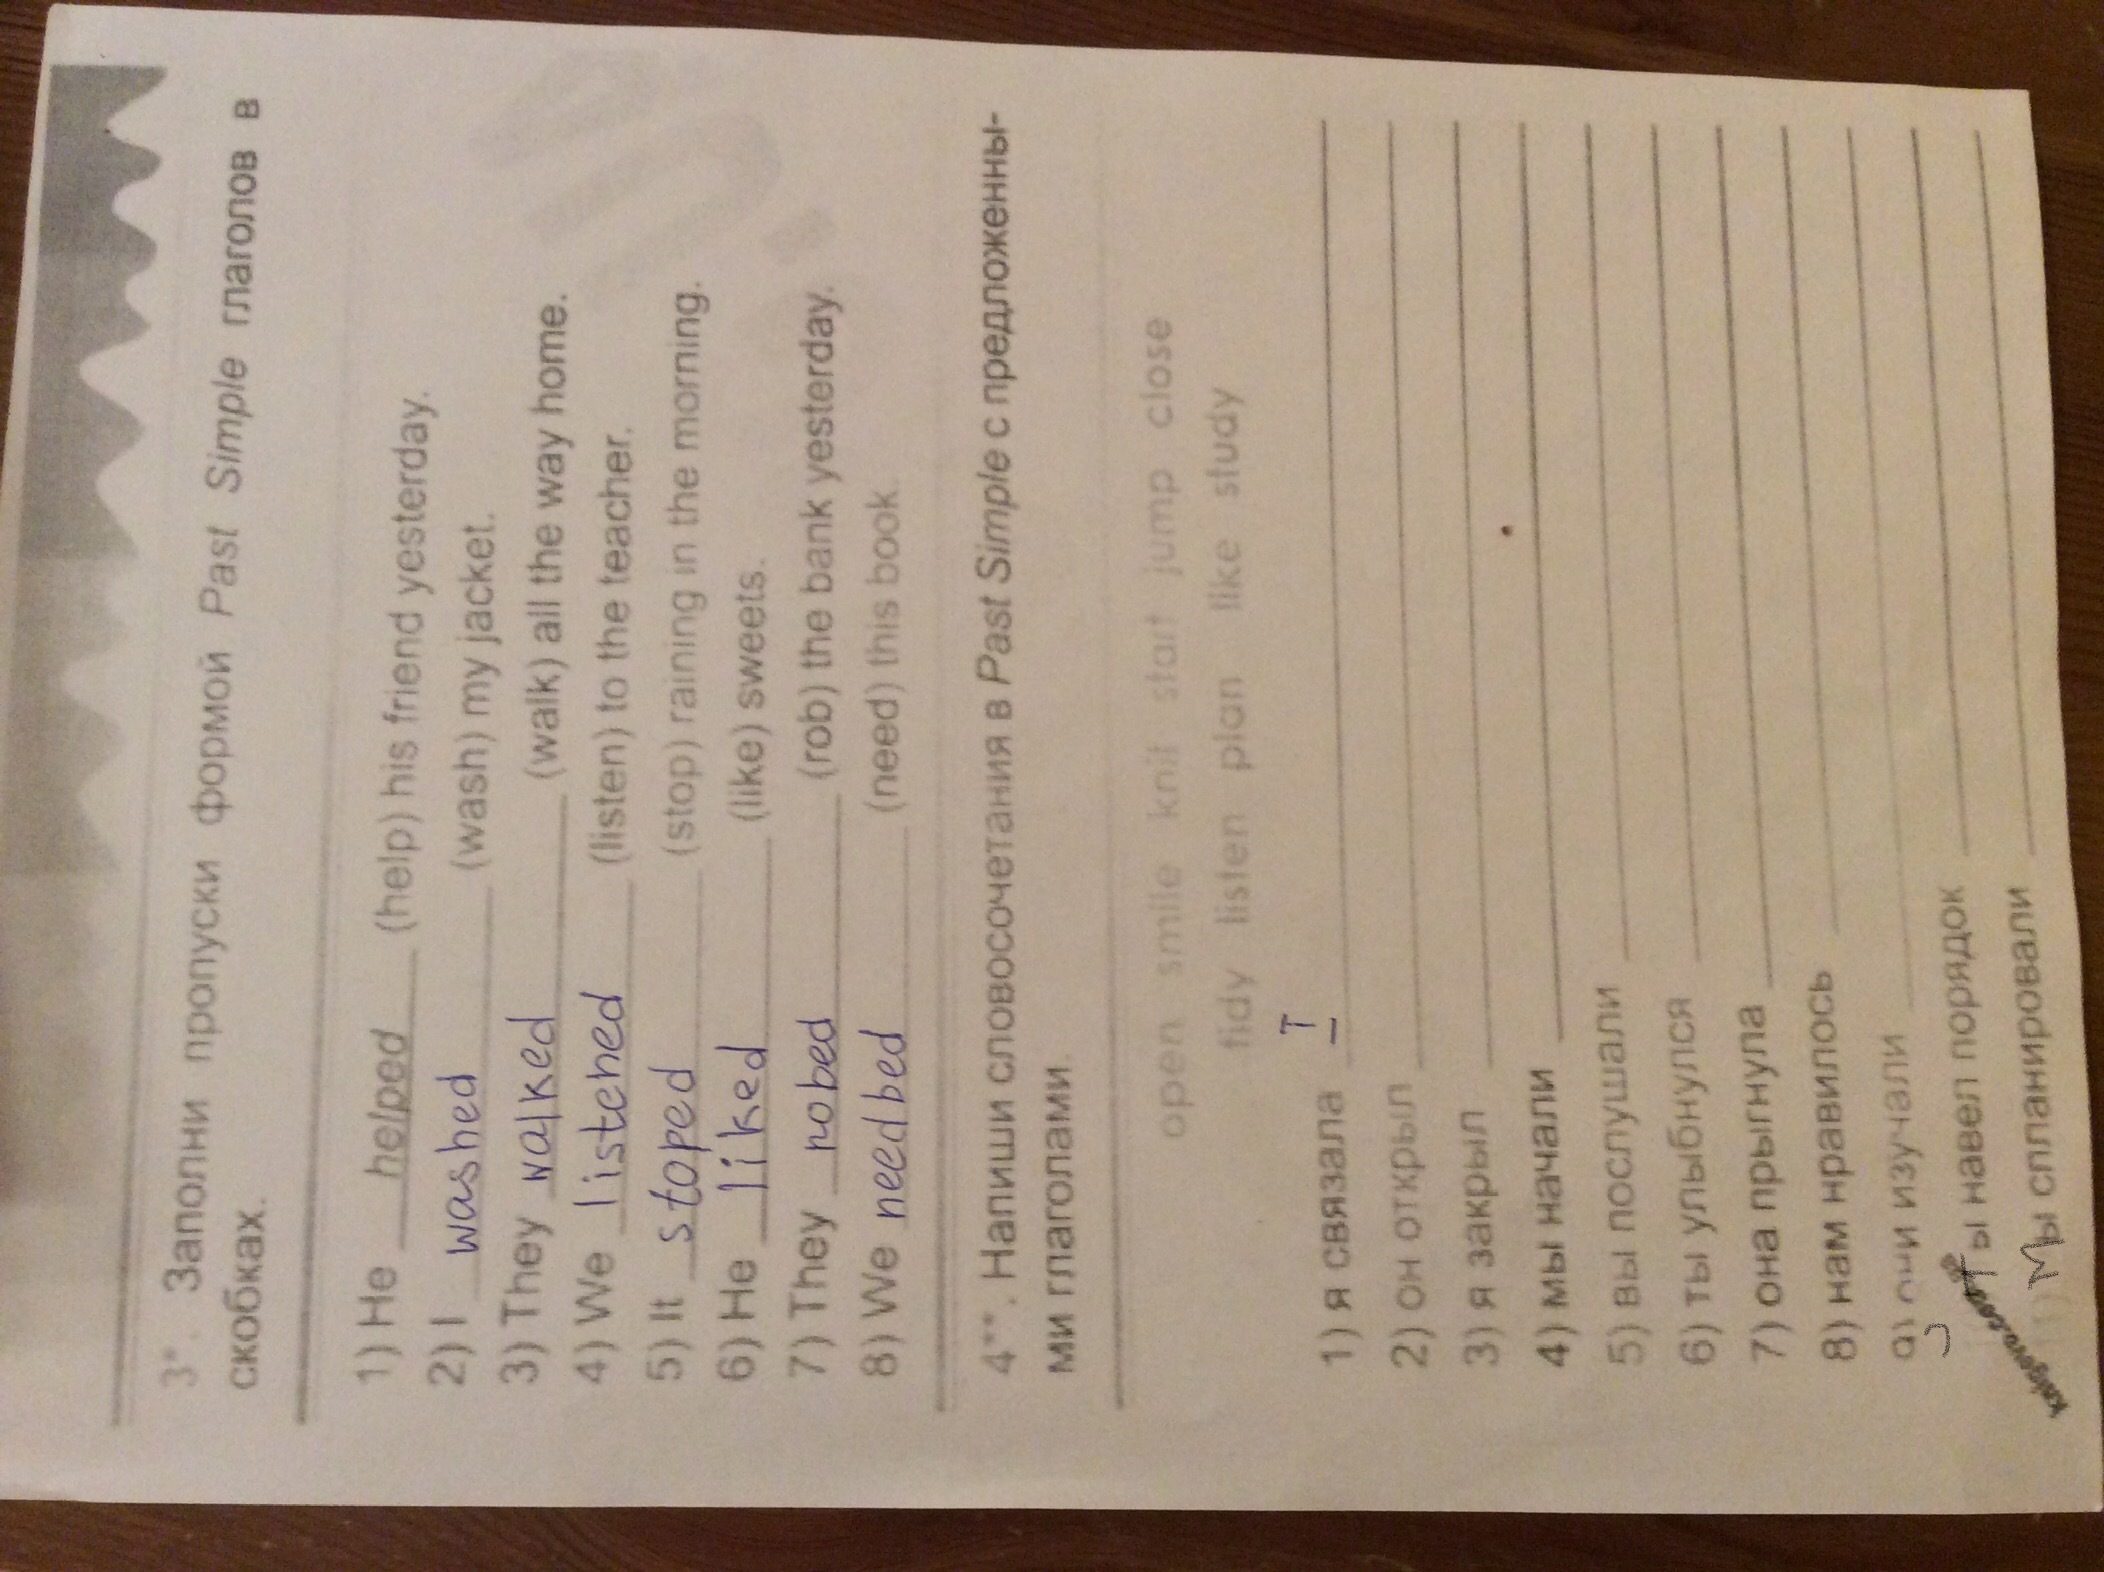 3*. Заполни пропуски формой Past Simple глаголов в
скобках.
1) He helped (help) his friend yesterday.
2) I washed (wash) my jacket.
3) They walked (walk) all the way home.
4) We listened (listen) to the teacher.
5) It stoped (stop) raining in the morning.
6) He liked (like) sweets.
7) They robed (rob) the bank yesterday.
8) We needbed (need) this book.
4**. Напиши словосочетания в Past Simple с предложенны-
ми глаголами.
open smile knit start jump close
tidy listen plan like study
1) я связала I
2) он открыл
3) я закрыл
4) мы начали
5) вы послушали
6) ты улыбнулся
7) она прыгнула
8) нам нравилось
9) они изучали
) Ты навел порядок
11) Мы спланировали